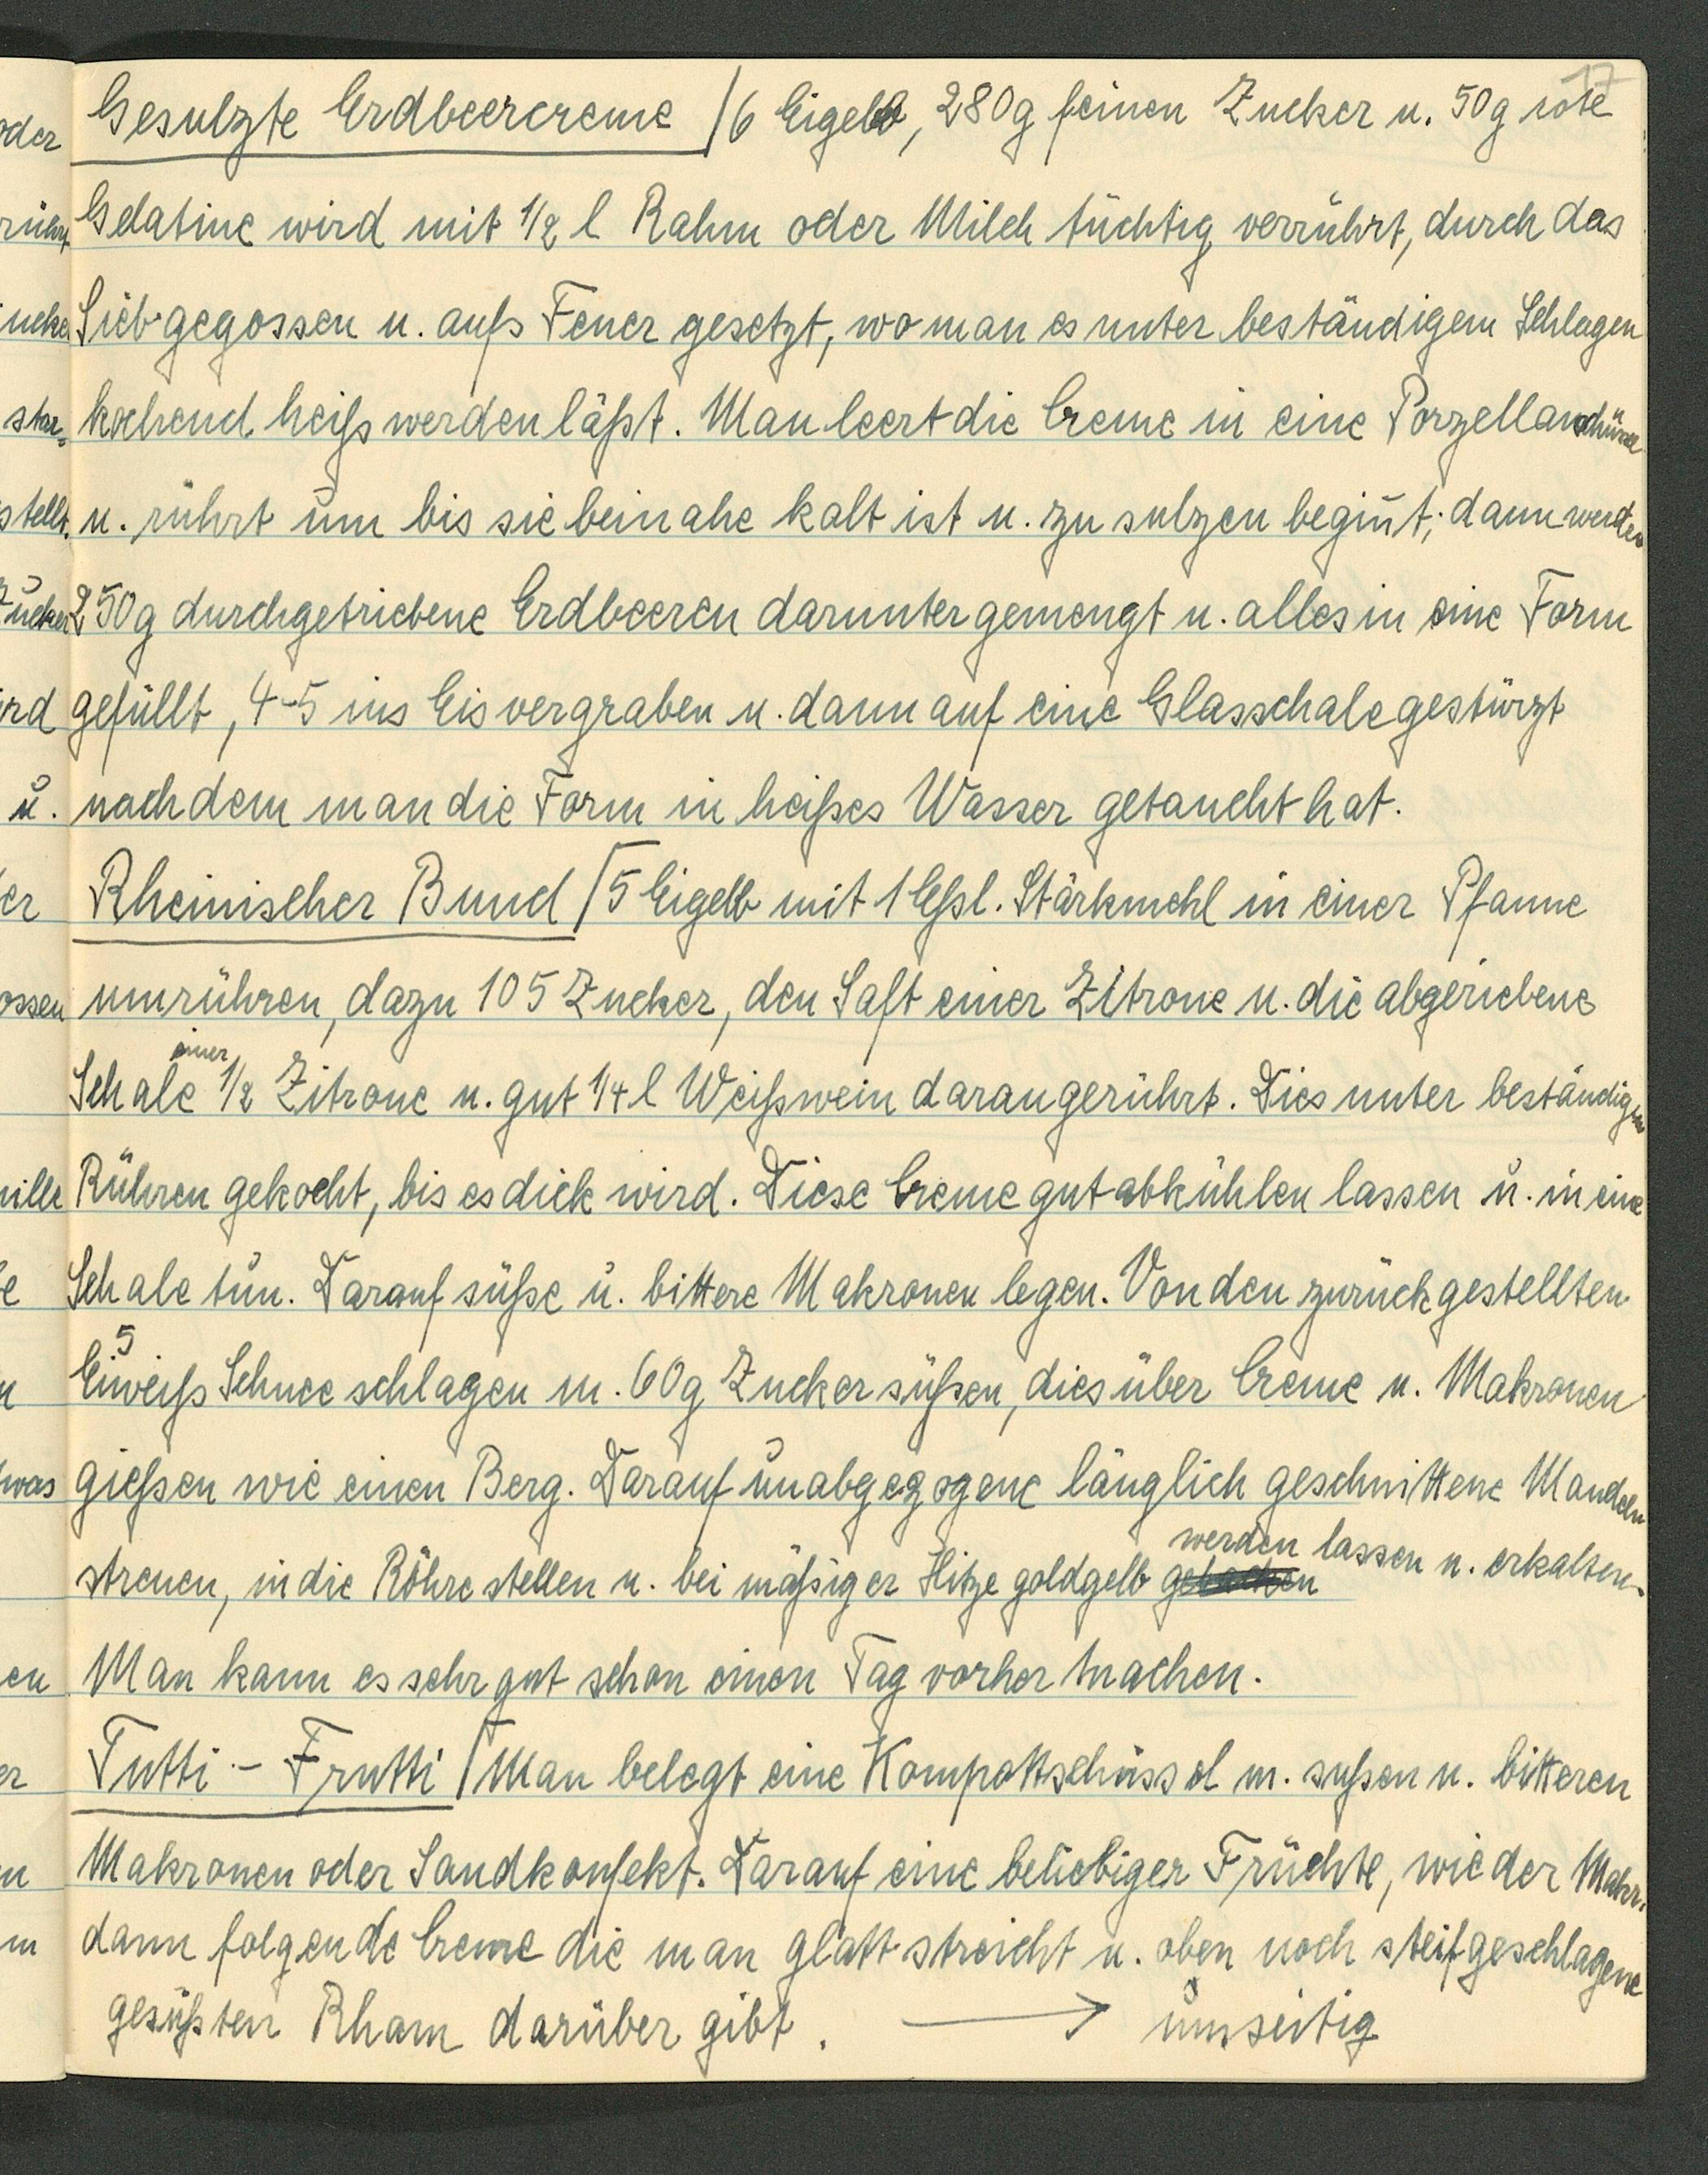 17
Gesulzte Erdbeercreme / 6 Eigelb, 280g feinen Zucker u. 50g rote
Gelatine wird mit 1/2 l Rahm oder Milch tüchtig verrührt, durch das
Sieb gegossen u. aufs Feuer gesetzt, wo man es unter beständigem Schlagen
kochend heiß werden läßt. Man leert die Creme in eine Porzellanschüssel
u. rührt um bis sie beinahe kalt ist u. zu sulzen begin̄t; dann werden
250g durchgetriebene Erdbeeren darunter gemengt u. alles in eine Form
gefüllt, 4-5 ins Eis vergraben u. dann auf eine Glasschale gestürzt
nachdem man die Form in heißes Wasser getaucht hat.
Rheinischer Bund / 5 Eigelb mit 1 Eßl. Stärkmehl in einer Pfanne
umrühren, dazu 105 Zucker, den Saft einer Zitrone u. die abgeriebene
Schale einer 1/2 Zitrone u. gut 1/4 l Weißwein darangerührt. Dies unter beständigem
Rühren gekocht, bis es dick wird. Diese Creme gut abkühlen lassen u. in eine
Schale tun. Darauf süße u. bittere Makronen legen. Von den zurückgestellten
5 Eiweiß Schnee schlagen m. 60g Zucker süßen, dies über Creme u. Makronen
gießen wie einen Berg. Darauf unabgezogene länglich geschnittene Mandeln
streuen, in die Röhre stellen u. bei mäßiger Hitze goldgelb gebacken werden lassen u. erkalten.
Man kann es sehr gut schon einen Tag vorher machen.
Tutti - Frutti / Man belegt eine Kompottschüssel m. sußen u. bitteren
Makronen oder Sandkonfekt. Darauf eine beliebiger Früchte, wieder Makr.
dann folgende Creme die man glatt streicht u. oben noch steifgeschlagene
gesüßten Rham darüber gibt. → umseitig